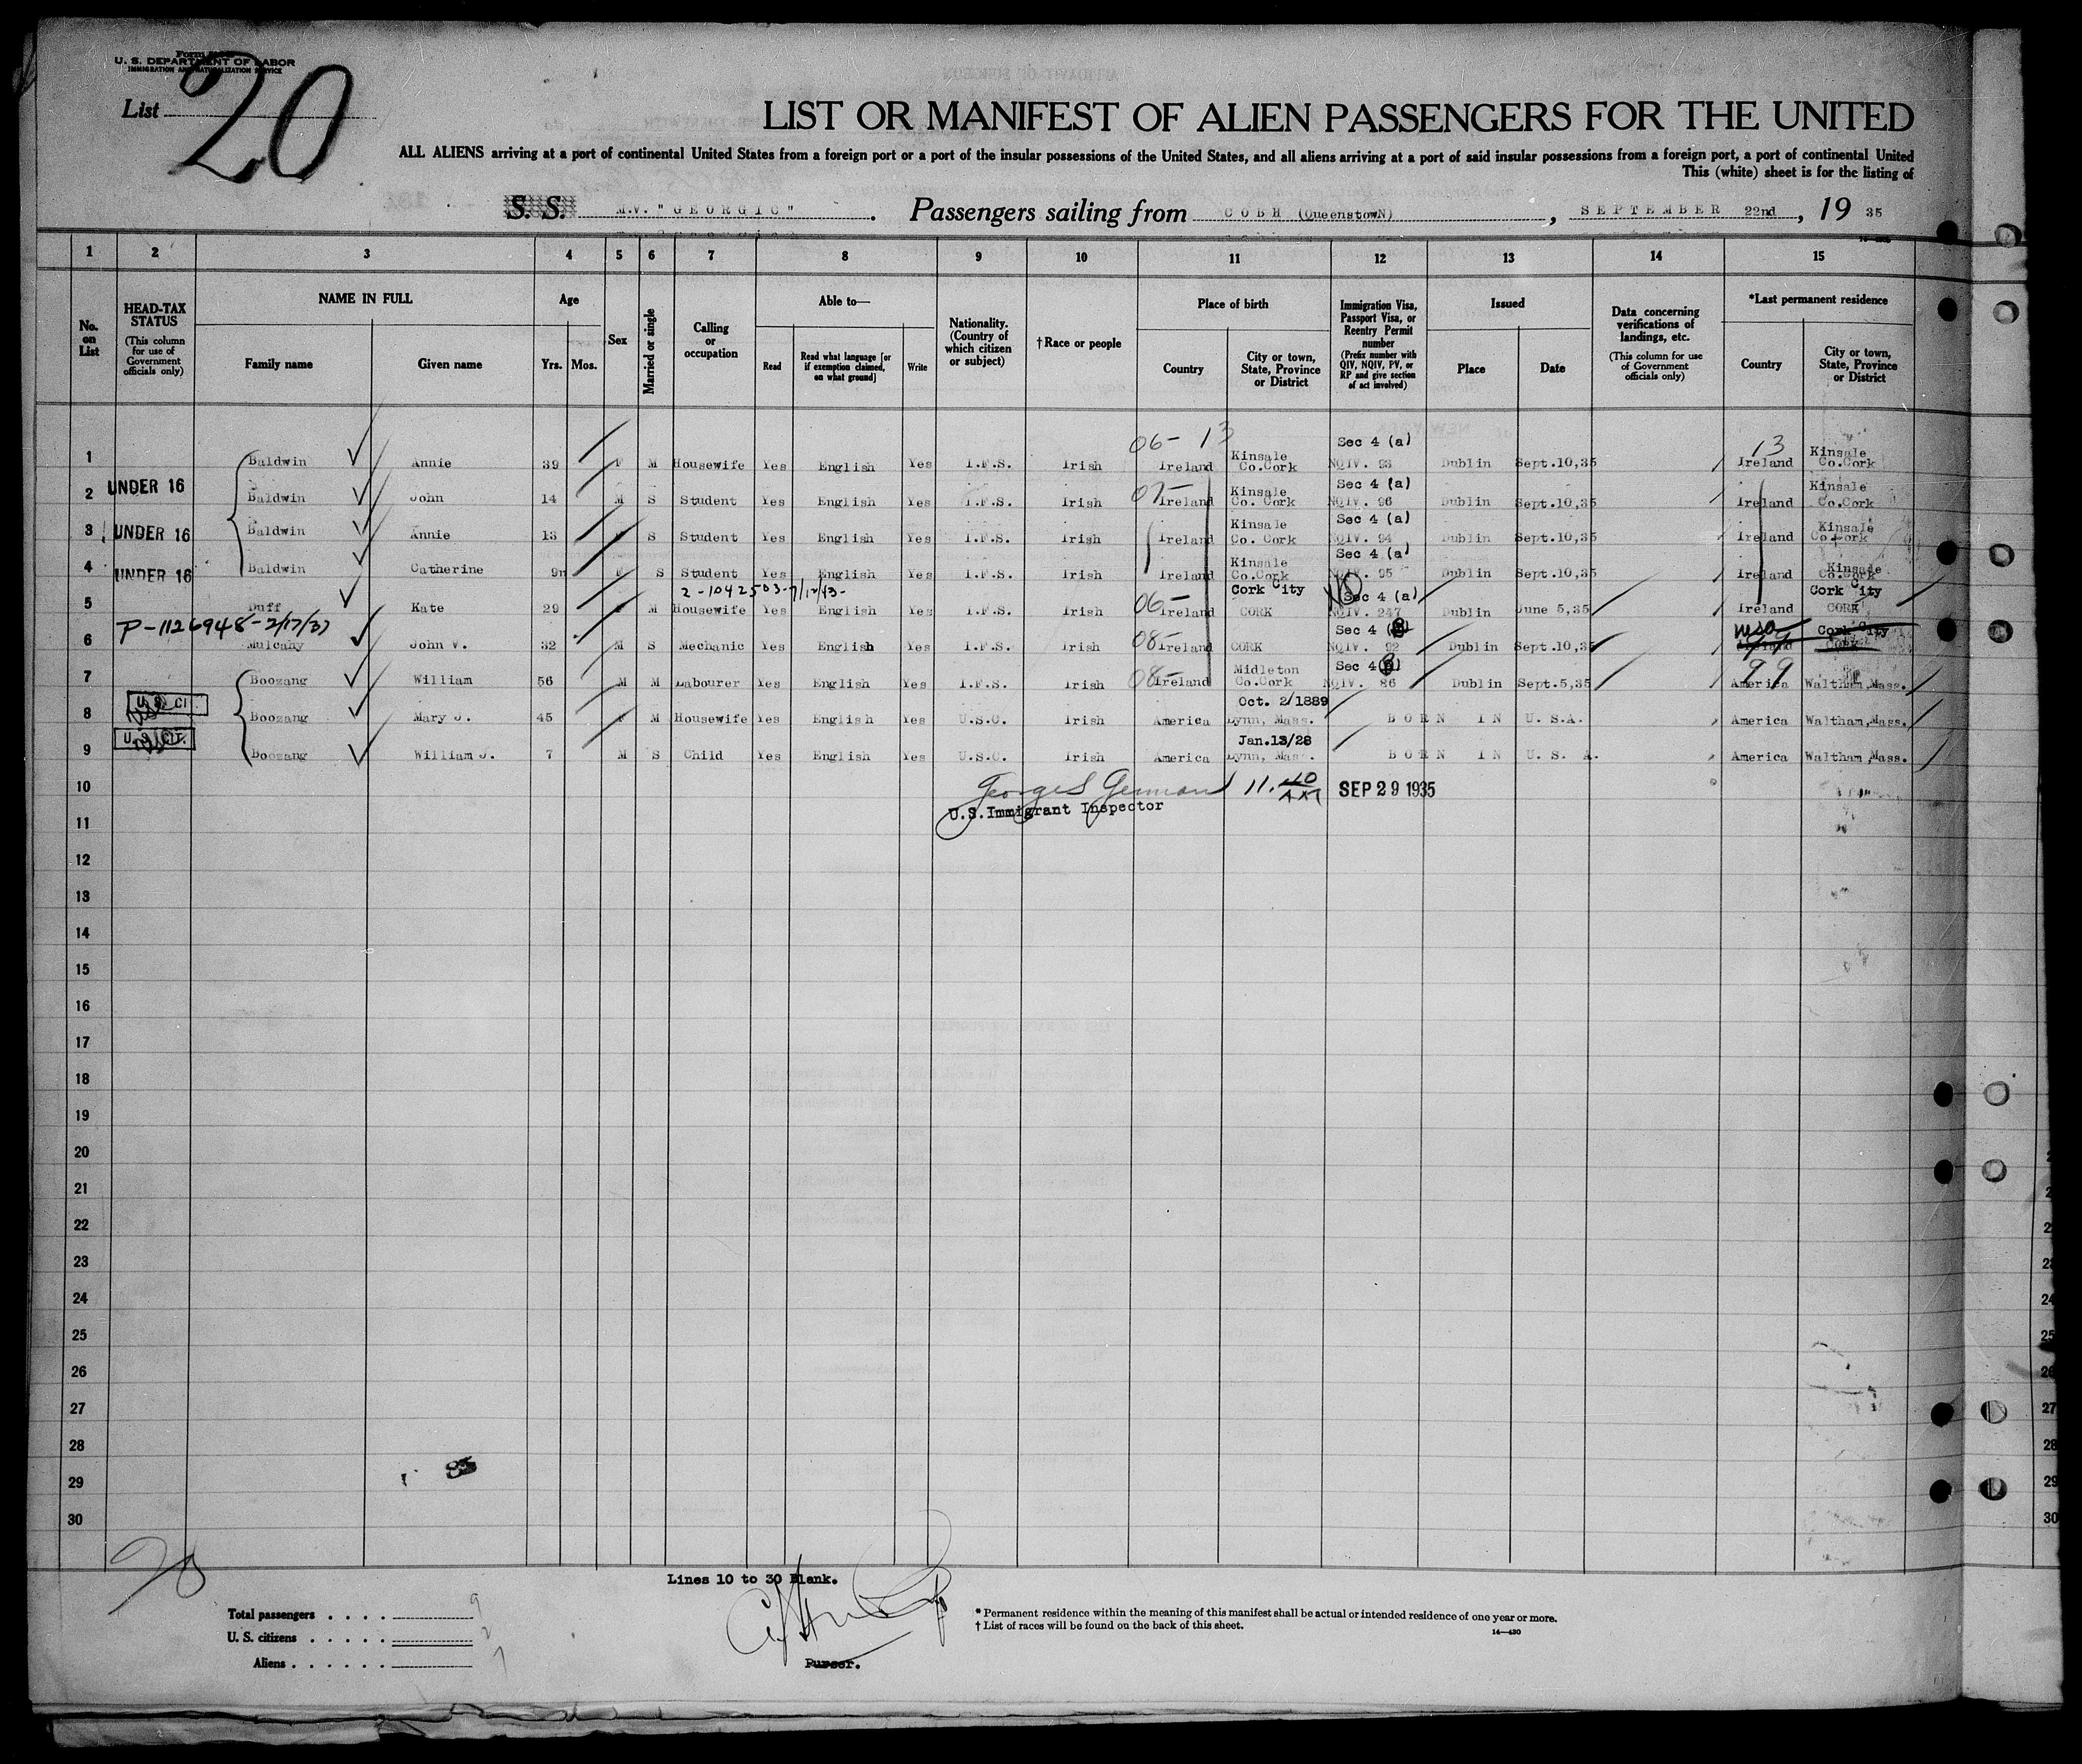 Form
U. S. DEPARTMENT OF LABOR
IMMIGRATION AND NATURALIZATION SERVICE
List 20
LIST OR MANIFEST OF ALIEN PASSENGERS FOR THE UNITED
ALL ALIENS arriving at a port of continental United States from a foreign port or a port of the insular possessions of the United States, and all aliens arriving at a port of said insular possessions from a foreign port, a port of continental United
This (white) sheet is for the listing of
S. S. M.V. "GEORGIC". Passengers sailing from COBH (QueenstowN), SEPTEMBER 22nd, 19 35
1 2 3 4 5 6 7 8 9 10 11 12 13 14 15
No. on List
HEAD-TAX STATUS
(This column for use of Government officials only)
NAME IN FULL
Family name Given name
Age
Yrs. Mos.
Sex
Married or single
Calling or occupation
Able to—
Read
Read what language [or if exemption claimed, on what ground]
Write
Nationality. (Country of which citizen or subject)
†Race or people
Place of birth
Country
City or town, State, Province or District
Immigration Visa, Passport Visa, or Reentry Permit number
(Prefix number with QIV, NQIV, PV, or RP and give section of act involved)
Issued
Place Date
Data concerning verifications of landings, etc.
(This column for use of Government officials only)
*Last permanent residence
Country
City or town, State, Province or District
06- 13 Sec 4 (a) 13
1 Baldwin Annie 39 F M Housewife Yes English Yes I.F.S. Irish Ireland Kinsale Co.Cork NQIV. 93 Dublin Sept.10,35 Ireland Kinsale Co.Cork
07- Sec 4 (a)
2 UNDER 16 Baldwin John 14 M S Student Yes English Yes I.F.S. Irish Ireland Kinsale Co. Cork NQIV. 96 Dublin Sept.10,35 Ireland Kinsale Co.Cork
Sec 4 (a)
3 UNDER 16 Baldwin Annie 13 F S Student Yes English Yes I.F.S. Irish Ireland Kinsale Co. Cork NQIV. 94 Dublin Sept.10,35 Ireland Kinsale Co Cork
Sec 4 (a)
4 UNDER 16 Baldwin Catherine 9 F S Student Yes English Yes I.F.S. Irish Ireland Kinsale Co.Cork NQIV. 95 Dublin Sept.10,35 Ireland Kinsale Co.Cork
2-1042503-7/12/43- 06- Sec 4 (a)
5 Duff Kate 29 F M Housewife Yes English Yes I.F.S. Irish Ireland Cork City CORK NQIV. 247 Dublin June 5,35 Ireland Cork City CORK
P-1126948-2/17/37 08- Sec 4
6 Mulcahy John V. 32 M S Mechanic Yes English Yes I.F.S. Irish Ireland CORK NQIV. 92 Dublin Sept.10,35 usa Ireland Cork City Cork
08- Sec 4 99
7 Boozang William 56 M M Labourer Yes English Yes I.F.S. Irish Ireland Midleton Co.Cork NQIV. 86 Dublin Sept.5,35 America Waltham,Mass.
Oct. 2/1889
8 U.S. CI Boozang Mary J. 45 F M Housewife Yes English Yes U.S.C. Irish America Lynn, Mass. BORN IN U.S.A. America Waltham,Mass.
Jan.13/28
9 U.S. CIT. Boozang William J. 7 M S Child Yes English Yes U.S.C. Irish America Lynn, Mass. BORN IN U. S. A. America Waltham,Mass.
10 George S German 11. SEP 29 1935
U.S.Immigrant Inspector
11
12
13
14
15
16
17
18
19
20
21
22
23
24
25
26
27
28
29
30
Lines 10 to 30 Blank.
Total passengers . . . . 9
U. S. citizens . . . . . 2
Aliens . . . . . . 7
Purser.
* Permanent residence within the meaning of this manifest shall be actual or intended residence of one year or more.
† List of races will be found on the back of this sheet.
14—430